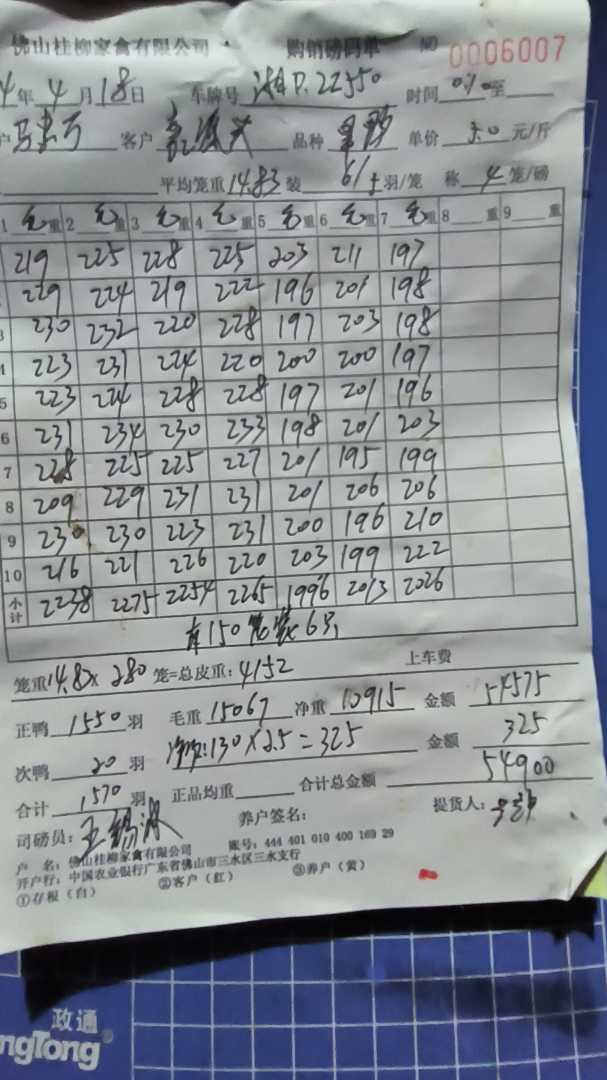 佛山桂柳家禽有限公司 购销磅码单 NO 0006007
4年4月18日 车牌号 湘D.22550 时间 至
户 客户 品种 单价 5.0 元/斤
平均笼重 14.83 装 6 羽/笼 称 4 笼/磅
1 毛重 2 毛重 3 毛重 4 毛重 5 毛重 6 毛重 7 毛重 8 重 9 重
219 225 228 225 203 211 197
229 224 219 222 196 201 198
3 230 232 220 228 197 203 198
4 223 231 224 220 200 200 197
5 223 224 228 228 197 201 196
6 231 234 230 233 198 201 203
7 228 225 225 227 201 195 199
8 209 229 231 231 201 206 206
9 230 230 223 231 200 196 210
10 216 221 226 220 203 199 222
小计 2238 2275 2254 2265 1996 2013 2026
有150笼装6只
笼重 14.83 × 280 笼=总皮重: 4152 上车费
正鸭 1550 羽 毛重 15067 净重 10915 金额 54575
次鸭 20 羽 净重:130×2.5=325 金额 325
合计 1570 羽 正品均重 合计总金额 54900
司磅员: 养户签名: 提货人:
户 名: 佛山桂柳家禽有限公司 账号: 444 401 010 400 169 29
开户行: 中国农业银行广东省佛山市三水区三水支行
①存根（白） ②客户（红） ③养户（黄）
政通
ngTong